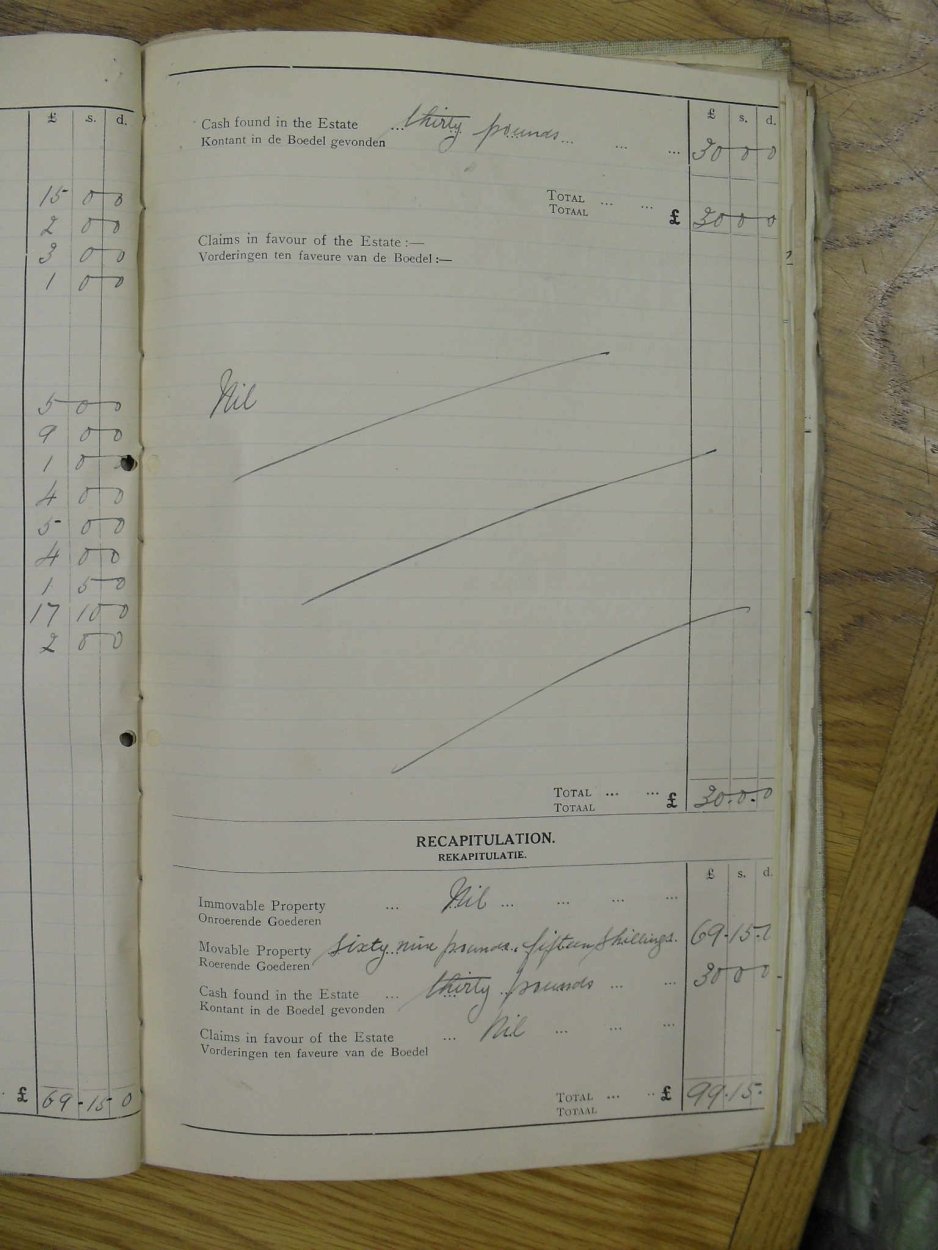 £ s. d.
15 0 0
2 0 0
3 0 0
1 0 0
5 0 0
9 0 0
1 0
4 0 0
5 0 0
4 0 0
1 5 0
17 10 0
2 0 0
£ 69-15 0
£ s. d.
Cash found in the Estate ... thirty pounds ... ... ...
Kontant in de Boedel gevonden 30 0 0
TOTAL ... ...
TOTAAL £ 30 0 0
Claims in favour of the Estate :—
Vorderingen ten faveure van de Boedel :—
Nil
TOTAL ... ...
TOTAAL £ 30.0.0
RECAPITULATION.
REKAPITULATIE.
£ s. d.
Immovable Property ... Nil ... ... ... ...
Onroerende Goederen
Movable Property sixty nine pounds. fifteen shillings. 69.15.
Roerende Goederen
Cash found in the Estate ... thirty pounds ... ... 30 0 0
Kontant in de Boedel gevonden
Claims in favour of the Estate ... Nil ... ... ...
Vorderingen ten faveure van de Boedel
TOTAL ... .. £ 99.15.
TOTAAL